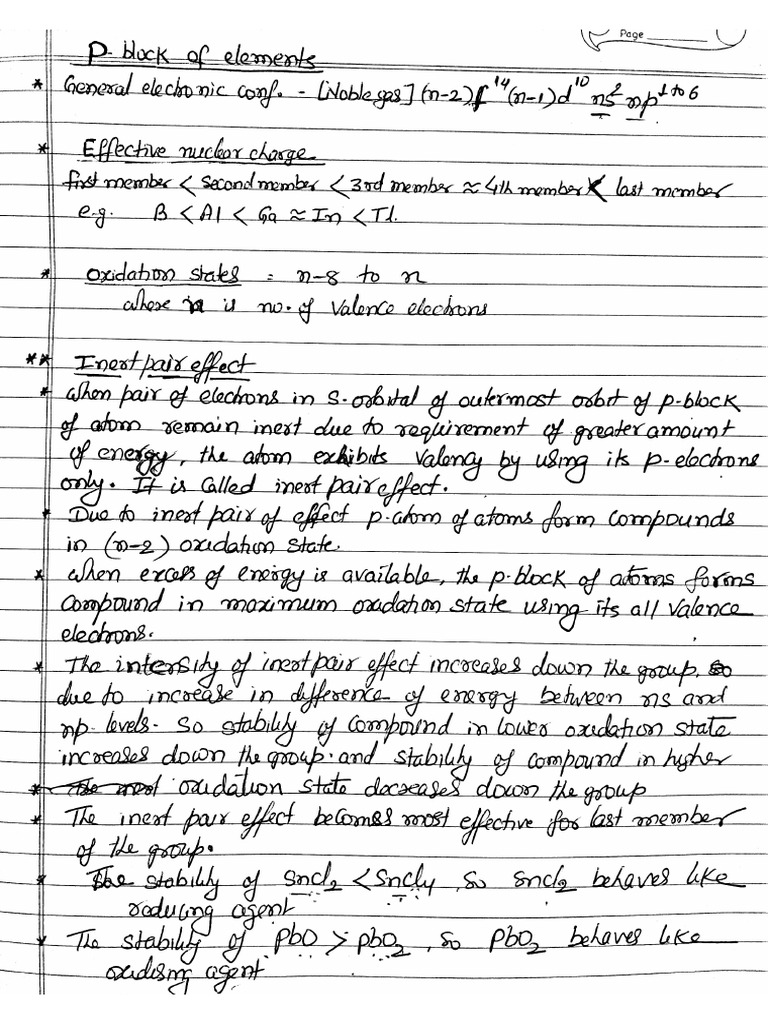 Page
P-block of elements
* General electronic conf. - [Noble gas] (n-2)f¹⁴ (n-1)d¹⁰ ns² np¹ ᵗᵒ ⁶
* Effective nuclear charge
first member < second member < 3rd member ≈ 4th member < last member
e.g. B < Al < Ga ≈ In < Tl.
* Oxidation states = n-8 to n
where n is no. of valence electrons
** Inert pair effect
* when pair of electrons in s-orbital of outermost orbit of p-block
of atom remain inert due to requirement of greater amount
of energy, the atom exhibits valency by using its p-electrons
only. It is called inert pair effect.
* Due to inert pair of effect p-atom of atoms form compounds
in (n-2) oxidation state.
* when excess of energy is available, the p-block of atoms forms
compound in maximum oxidation state using its all valence
electrons.
* The intensity of inert pair effect increases down the group, so
due to increase in difference of energy between ns and
np levels. So stability of compound in lower oxidation state
increases down the group. and stability of compound in higher
* The most oxidation state decreases down the group
* The inert pair effect becomes most effective for last member
of the group.
* The stability of SnCl2 < SnCl4, so SnCl2 behaves like
reducing agent
* The stability of PbO > PbO2, so PbO2 behaves like
oxidising agent